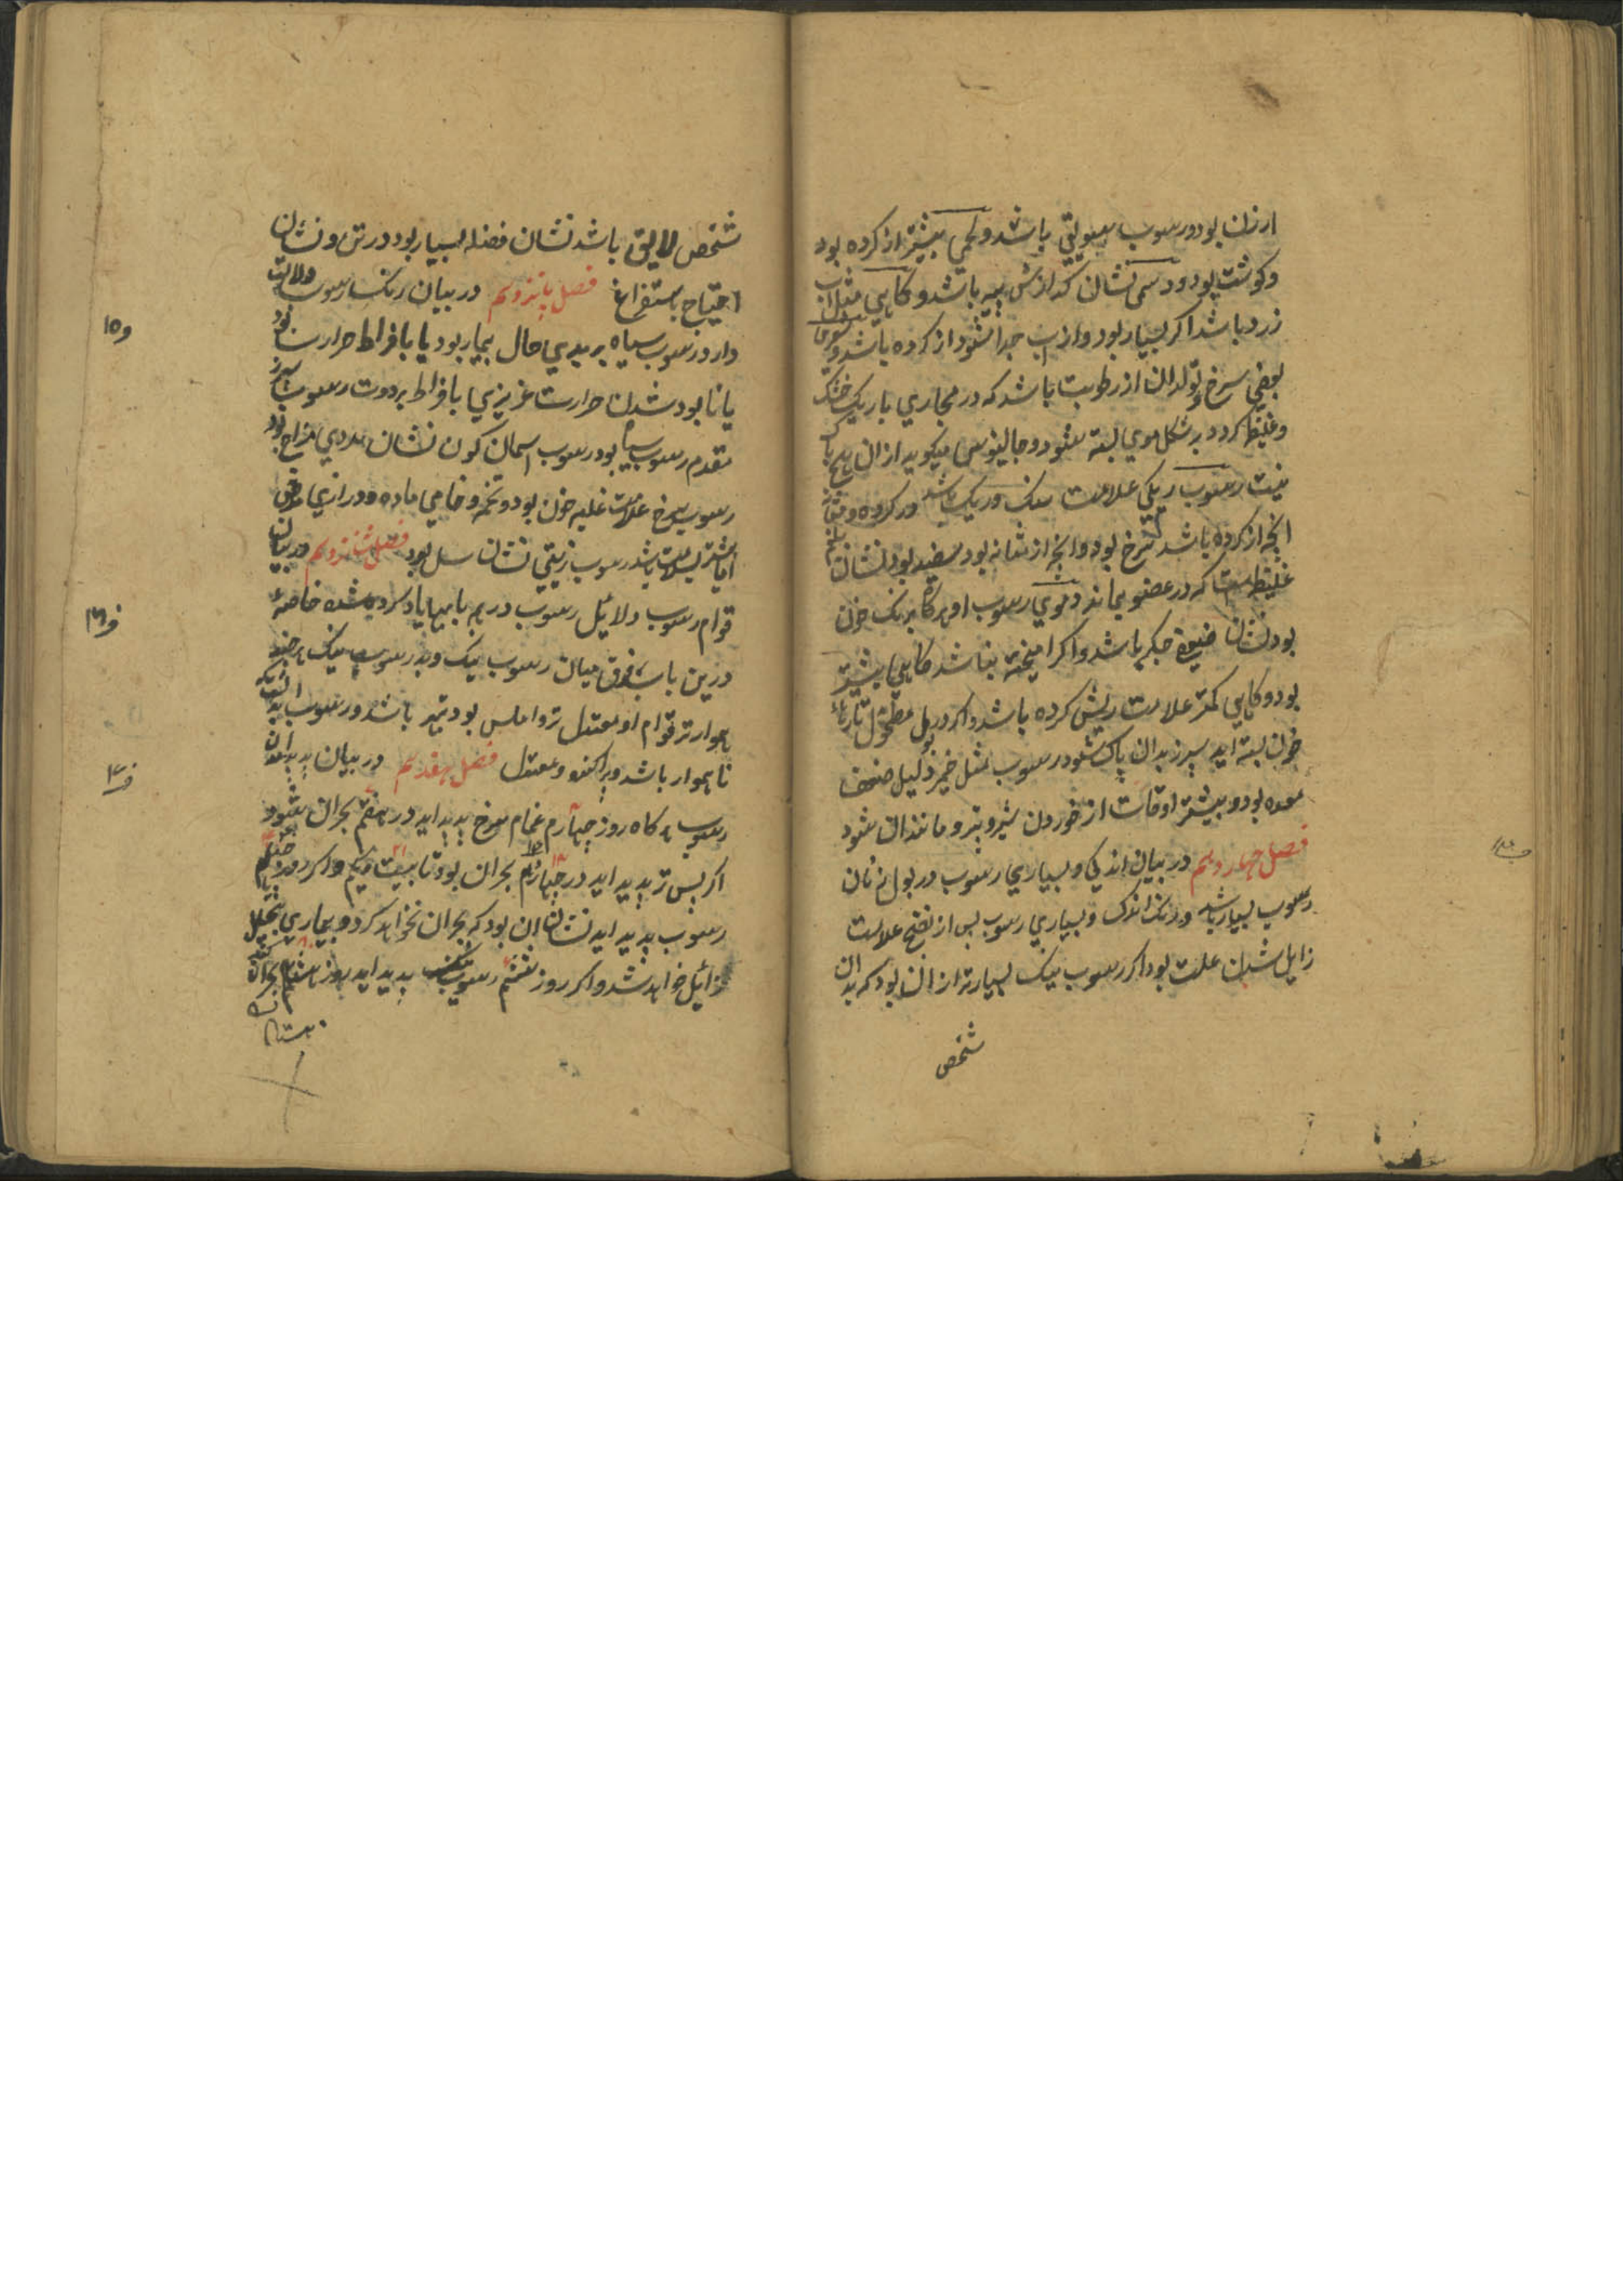 ارزن بود و رسوب سویقی باشد و لحمی بیشتر از کرده بود
و کوشت بود و دسمی نشان کدازش پیه باشد و کاهی مثل آب
زرد باشد اکر بسیار بود و از آب جدا شود از کرده باشد و
بعضی سرخ و تولد ان از رطوبت باشد که در مجاری باریک خشک
و غلیظ کردد بر شکل موی بسته شود و جالینوس میکوید از ان هیچ باک
نیست رسوب ریکی علامت سنک و ریک باشد در کرده و مثانه
انچه از کرده باشد سرخ بود و انچه از مثانه بود سفید بود نشان بلغم
غلیظ است که در عضو بماند دموی رسوب او هرکاه برنک خون
بود نشان ضعف جکر باشد و اکر امیخته نباشد کاهی بیشتر
بود و کاهی کمتر علامت ریش کرده باشد و اکر در بول مطحول تارهاء
خون بسته اید سپرز بدان پاک شود رسوب مثل خمیر دلیل ضعف
معده بود و بیشتر اوقات از خوردن شیر و پنیر و مانند ان شود
فصل چهاردهم در بیان اندکی و بسیاری رسوب در بول
رسوب بسیار باشد و رنک اندک و بسیاری رسوب پس از نضج علامت
زایل شدن علت بود اکر رسوب نیک بسیارتر از ان بود که بدان
شخص
شخص لایق باشد نشان فضله بسیار بود در تن و نشان
احتیاج باستفراغ فصل پانزدهم در بیان رنک رسوب دلالت
دارد رسوب سیاه بر بدی حال بیمار بود یا بافراط حرارت بود
یا نابود شدن حرارت غریزی یا بافراط برودت رسوب سبز
مقدم رسوب سیاه بود رسوب اسمان کون نشان سردی مزاج بود
رسوب سرخ علامت غلبه خون بود و تخمه و خامی ماده و درازی مرض
اما بیشتر بسلامت باشد رسوب زیتی نشان سل بود فصل شانزدهم در بیان
قوام رسوب دلائل رسوب در هر بابیها یاد کرده شده خاصه
درین باب فرق میان رسوب نیک و بد رسوب نیک هرچند
هموارتر قوام او معتدل تر و املس بود بهتر باشد و رسوب بد انست که
ناهموار باشد و پراکنده و معتدل فصل هفدهم در بیان پدید امدن
رسوب هرکاه روز چهارم غمام سرخ پدید اید در هفتم بحران شود
اکر پس تر پدید اید در چهاردهم بحران بود تا بیست و یکم و اکر روز چهلم
رسوب پدید اید نشان ان بود که بحران نخواهد کرد و بیماری بتحلیل
زائل خواهد شد و اکر روز ششم رسوب پدید اید بروز هشتم بحران
ف۱۵
ف۱۶
ف۱۷